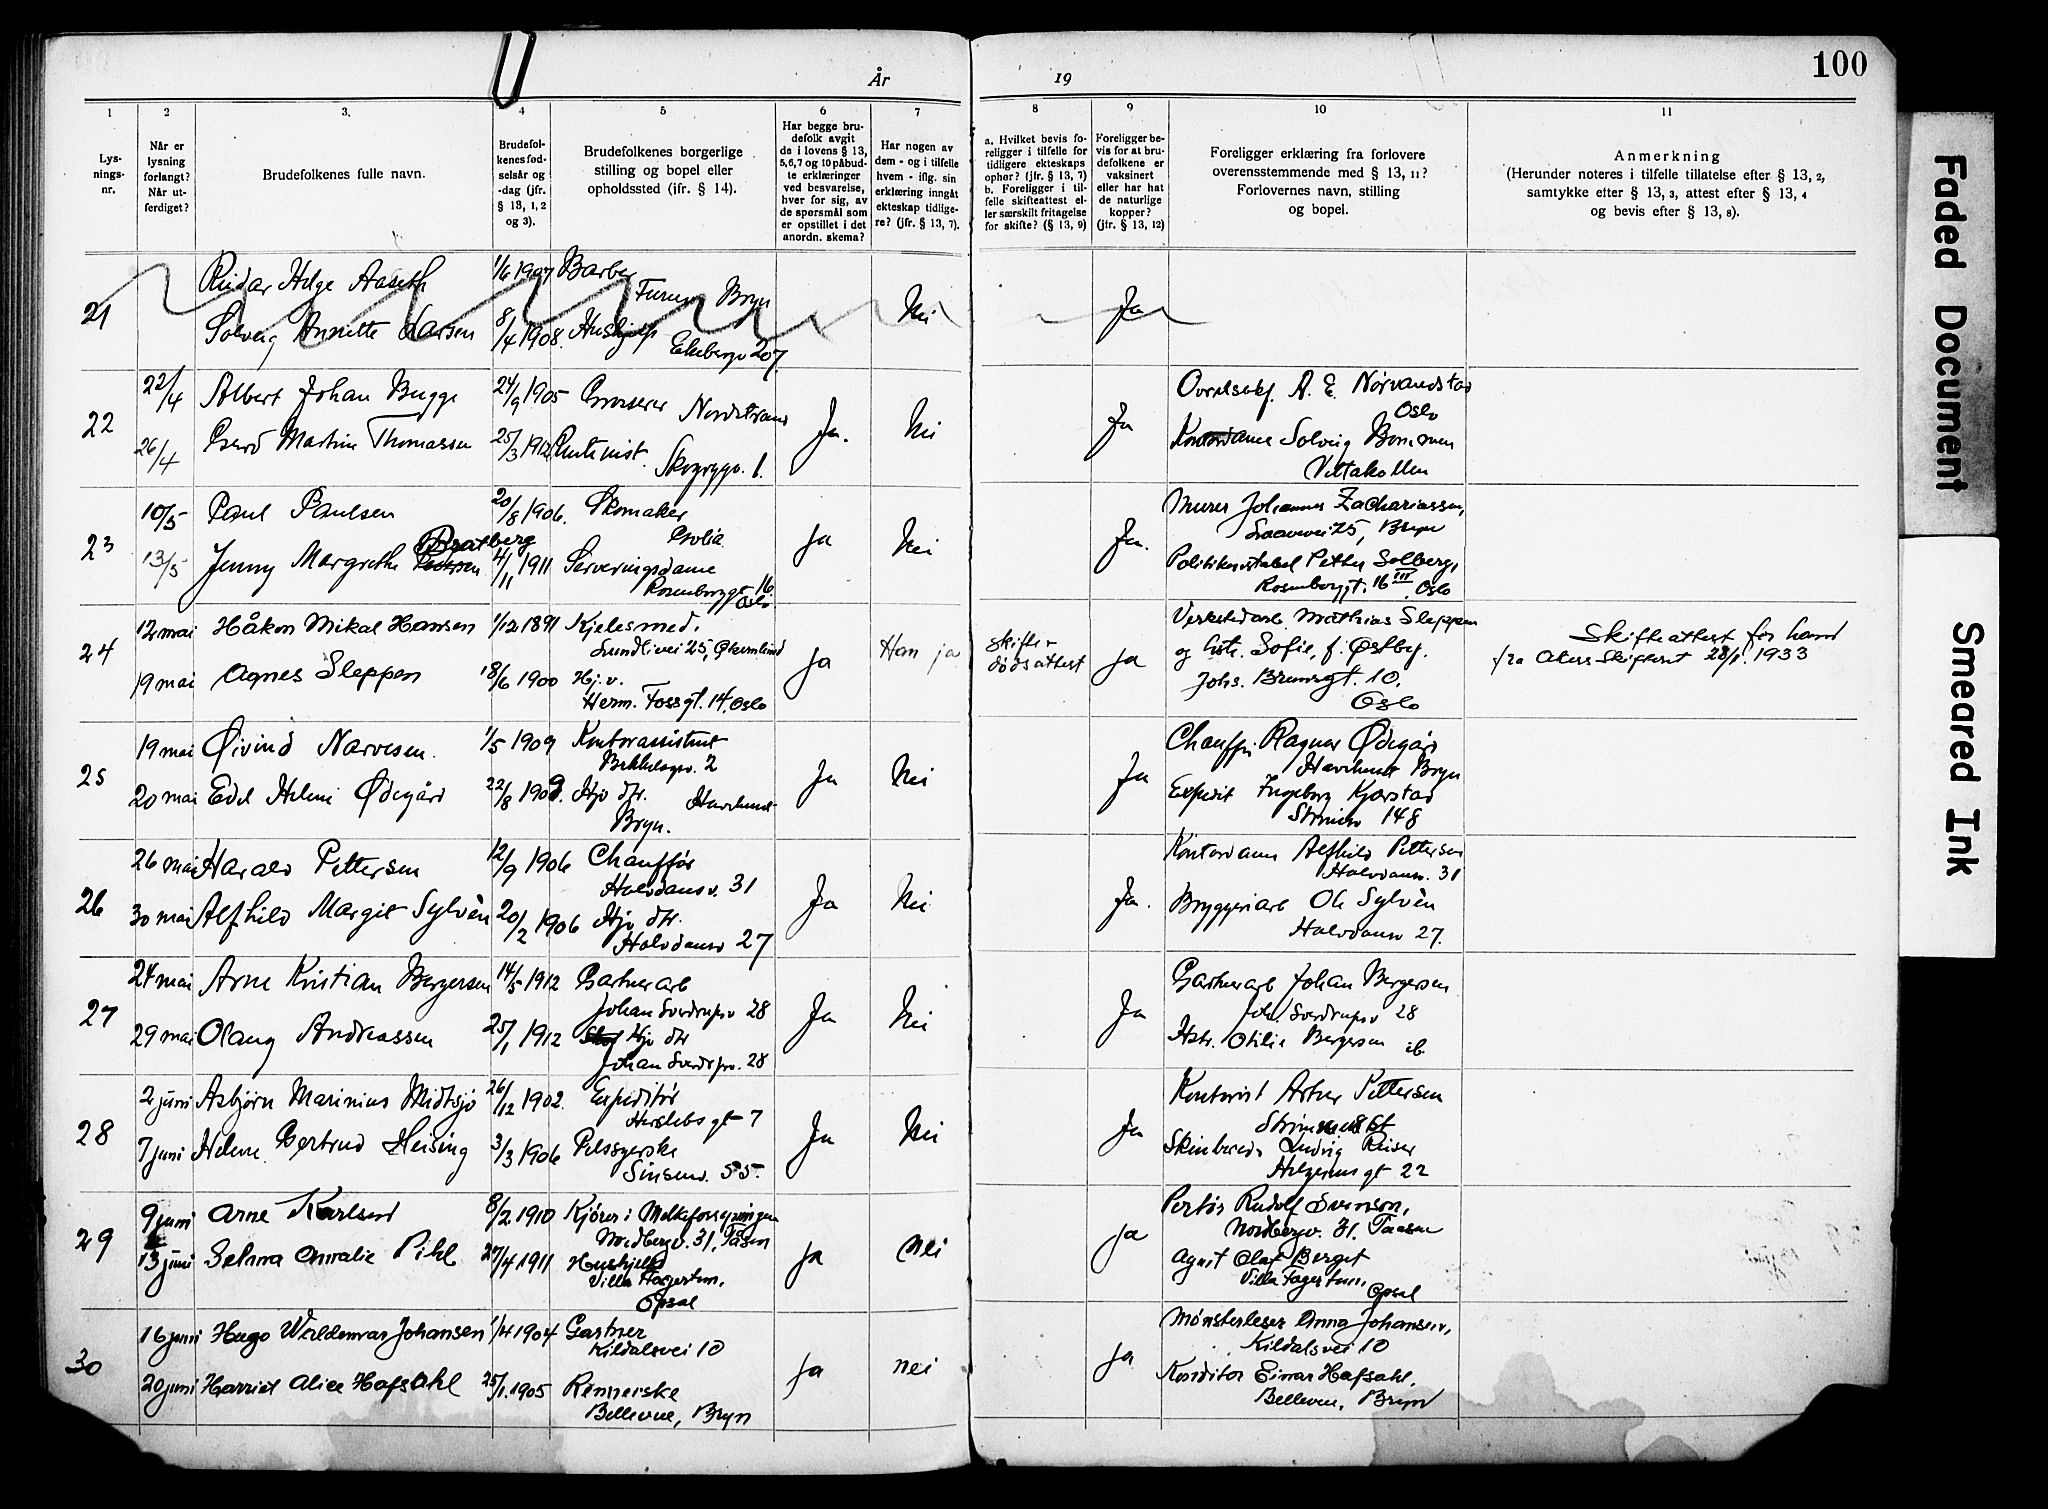 År
19
100
1
2
3.
4
5
6
7
8
9
10
11
Lys-
nings-
nr.
Når er
lysning
forlangt?
Når ut-
ferdiget?
Brudefolkenes fulle navn.
Brudefol-
kenes fød-
selsår og
-dag (jfr.
§ 13, 1, 2
og 3).
Brudefolkenes borgerlige
stilling og bopel eller
opholdssted (jfr. § 14).
Har begge bru-
defolk avgit
de i lovens § 13,
5,6,7 og 10 påbud-
te erklæringer
ved besvarelse,
hver for sig, av
de spørsmål som
er opstillet i det
anordn. skema?
Har nogen av
dem - og i tilfelle
hvem - iflg. sin
erklæring inngått
ekteskap tidlige-
re? (jfr. § 13, 7).
a. Hvilket bevis fo-
religger i tilfelle for
tidligere ekteskaps
ophør? (jfr. § 13, 7)
b. Foreligger i til-
felle skifteattest el-
ler særskilt fritagelse
for skifte? (§ 13, 9)
Foreligger be-
vis for at bru-
defolkene er
vaksinert
eller har hat
de naturlige
kopper?
(jfr. § 13, 12)
Foreligger erklæring fra forlovere
overensstemmende med § 13, 11?
Forlovernes navn, stilling
og bopel.
Anmerkning
(Herunder noteres i tilfelle tillatelse efter § 13, 2,
samtykke efter § 13, 3, attest efter § 13, 4
og bevis efter § 13, 8).
21
Reidar Helge Aaseth 1/6 1907 Barber
Furum Bryn
Nei Ja
Solveig Annette Larsen 8/4 1908. Hushjelp
Ekebergv 207.
22
22/4 Albert Johan Bugge 24/9 1905 Grosserer
Nordstrand
Ja. Nei Ja
Overretssakf. A. E. Nørvandstad
Oslo
26/4 Gerd Martine Thomassen 25/3 1912
Skogryggv. 1.
Kontordame Solveig
Vettakollen
23
10/5 Paul Paulsen 20/8 1906. Skomaker
Godlia
Ja Nei Ja.
Murer Johannes Zachariassen,
25, Bryn
13/5 Jenny Margrethe Bratberg Pedersen 4/11 1911 Serveringsdame
Rosenborggt 16
Oslo
Politikonstabel Petter Solberg,
Rosenborggt. 16 III Oslo
24
12 mai Håkon Mikal Hansen 1/12 1891 Kjelesmed.
Lundlivei 25,
Ja Han ja
Skifte-
dødsattest
Ja
Verkstedarb. Mathias Sleppen
og hstr. Sofie, f. Østby.
Johs. Brunsgt. 10.
Oslo
Skifteattest for ham
fra Akers Skifterett 28/1. 1933
19 mai Agnes Sleppen 18/6 1900 Hj. v.
Herm. Fossgt. 14. Oslo
25
19 mai Øivind Narvesen. 1/5 1909 Kontorassistent
Bekkelagsv. 2
Ja Nei Ja
Chauffør Ragnar Ødegård
Havelund Bryn
20 mai Edel Helene Ødegård 22/8 1909. Hjv dtr. Havelund
Bryn.
Expedit Ingeborg Kjørstad
148
26
26 mai Harald Pettersen 12/9 1906 Chauffør
Halvdansv. 31
Ja Nei Ja.
Kontordame Alfhild Pettersen
Halvdansv. 31
30 mai Alfhild Margit Sylvén 20/2 1906 Hjv. dtr.
Halvdansv 27
Bryggeriarb Ole Sylvén
Halvdansv 27.
27
24 mai Arne Kristian Bergersen 14/5 1912 Gartnerarb
Johan Sverdrupsv 28
Ja Nei Ja
Gartnerarb Johan Bergersen
Joh. Sverdrupsv 28
29 mai Olaug Andreassen 25/1 1912 Hjv dtr
Johan Sverdrpsv. 28
Hstr. Otilie Bergersen ib.
28
2 juni Asbjørn Marinius Midtsjø 26/12 1902. Expeditør
Herslebs gt 7
Ja Nei Ja
Kontorist Arthur Pettersen
7 juni Helene Gertrud Heising 3/3 1906 Pelssyerske
Sinsenv. 55.
Skinbered. Ludvig Reiser
Helgesens gt 22
29
9 juni Arne Karlsen 8/2 1910 Kjører i Melkeforsyningen
Nordbergv. 31. Tåsen
Ja Nei Ja
Portør Rudolf Svenson,
Nordbergv. 31, Taasen
13 juni Selma Amalie Pihl 27/4 1911 Hushjelp
Villa Fagertun,
Opsal
Agent Olaf Berget
Villa Fagertun,
Opsal
30
16 juni Hugo Waldemar Johansen 1/4 1904 Gartner
Kildalsvei 10
Ja nei Ja
Mønsterleser Anna Johansen,
Kildalsvei 10
20 juni Harriet Alice Hafsahl 25/1. 1905 Renserske
Bellevue, Bryn
Konditor Einar Hafsahl.
Bellevue, Bryn
Faded Document
Smeared Ink